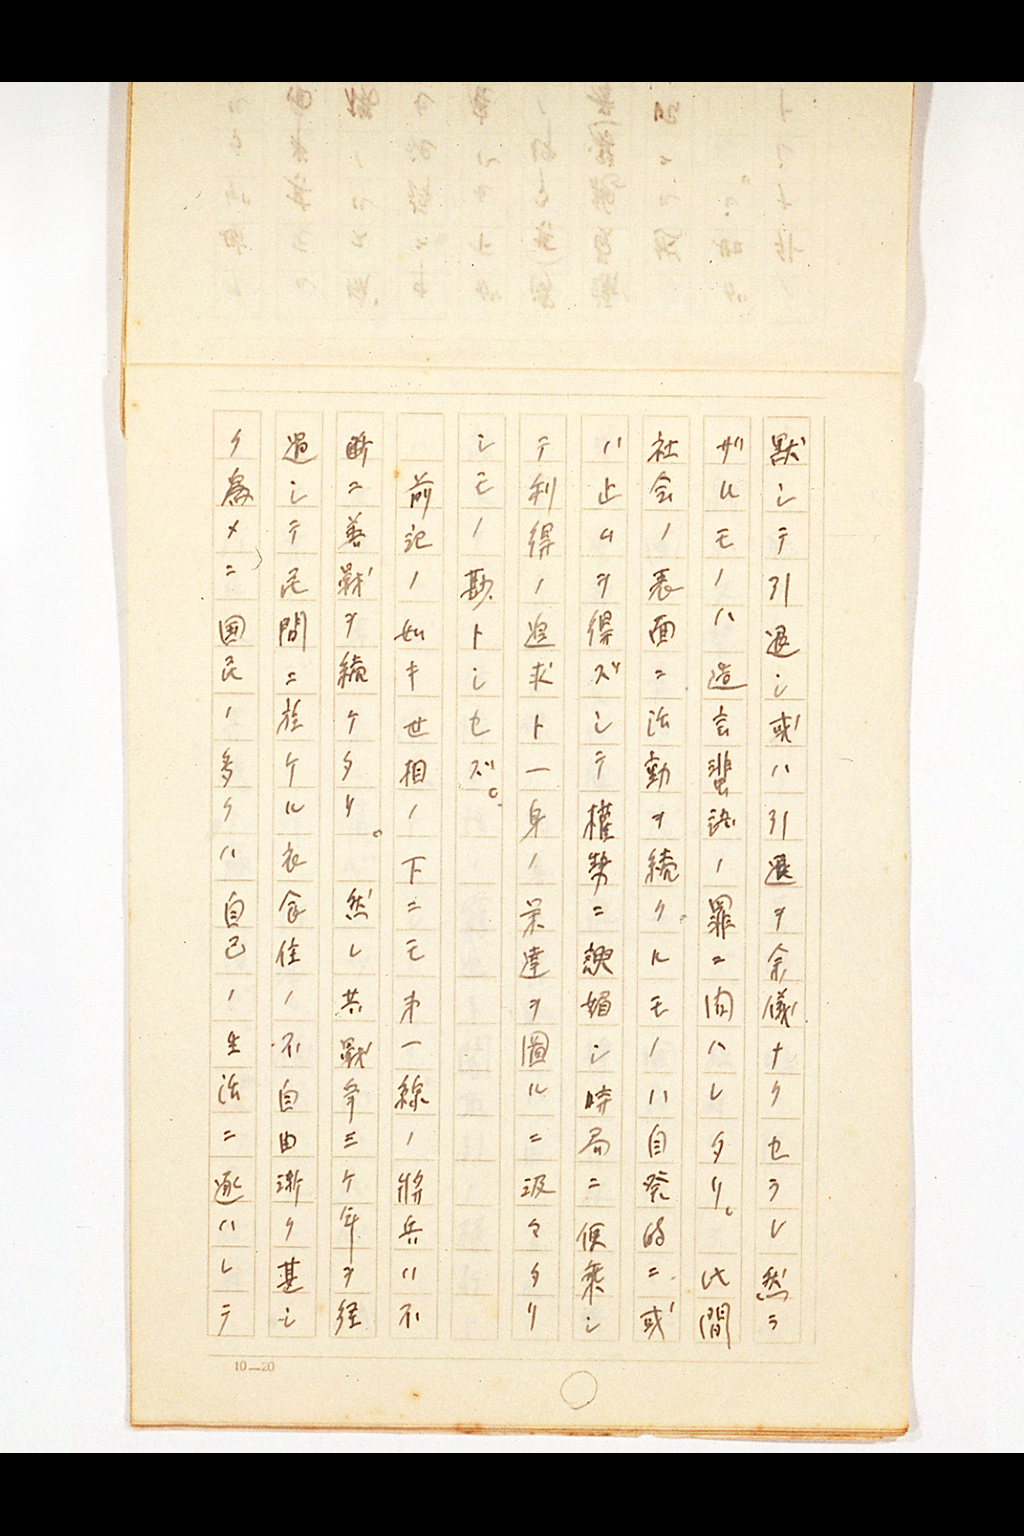 黙シテ引退シ或ハ引退ヲ余儀ナクセラレ然ラ
ザルモノハ造言蜚語ノ罪ニ問ハレタリ。此間
社会ノ表面ニ活動ヲ続クルモノハ自発的ニ或
ハ止ムヲ得ズシテ權勢ニ諛媚シ時局ニ便乗シ
テ利得ノ追求ト一身ノ栄達ヲ圖ルニ汲々タリ
シモノ尠トシセズ。
前記ノ如キ世相ノ下ニモ第一線ノ將兵ハ不
断ニ善戦ヲ続ケタリ。然レ共戦争三ケ年ヲ経
過シテ民間ニ於ケル衣食住ノ不自由漸ク甚シ
ク為メニ国民ノ多クハ自己ノ生活ニ逐ハレテ
10—20